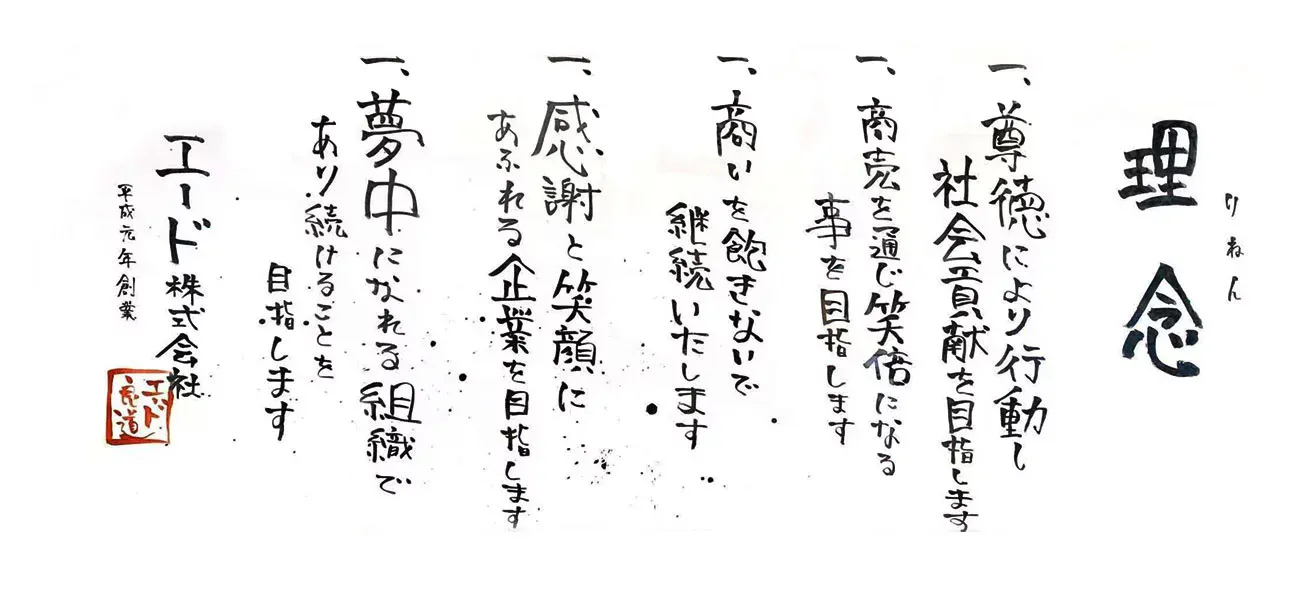 りねん
理念
一、尊徳により行動し
社会貢献を目指します
一、商売を通じ笑倍になる
事を目指します
一、商いを飽きないで
継続いたします
一、感謝と笑顔に
あふれる企業を目指します
一、夢中になれる組織で
あり続けることを
目指します
エード株式会社
平成元年創業